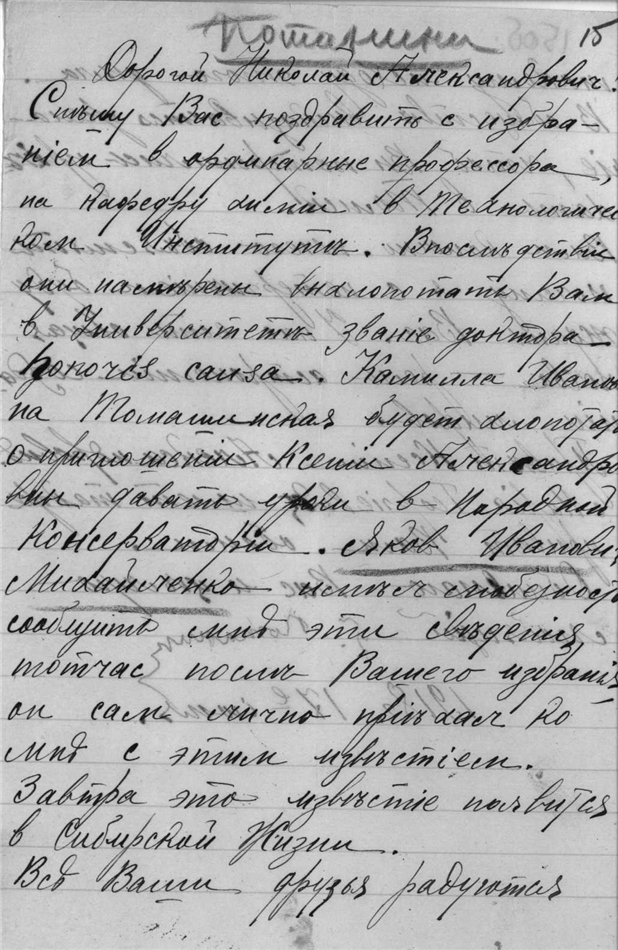 Потанин
15
Дорогой Николай Александрович!
Спѣшу Вас поздравить с избра-
нiем в ординарные профессора,
на кафедру химiи в Технологичес
ком Институтѣ. Впослѣдствiи
они намѣрены выхлопотать Вам
в Университетѣ званiе доктора
honoris causa. Камилла Иванов
на Томашинская будет хлопотать
о приглошенiи Ксенiи Александро
вны давать уроки в Народной
Консерваторiи. Яков Иванович
Михайленко имѣл любезность
сообщить мнѣ эти свѣдения
тотчас послѣ Вашего избранiя
он сам лично прiѣхал ко
мнѣ с этим извѣстiем.
Завтра это извѣстiе появится
в Сибирской Жизни.
Всѣ Ваши друзья радуются